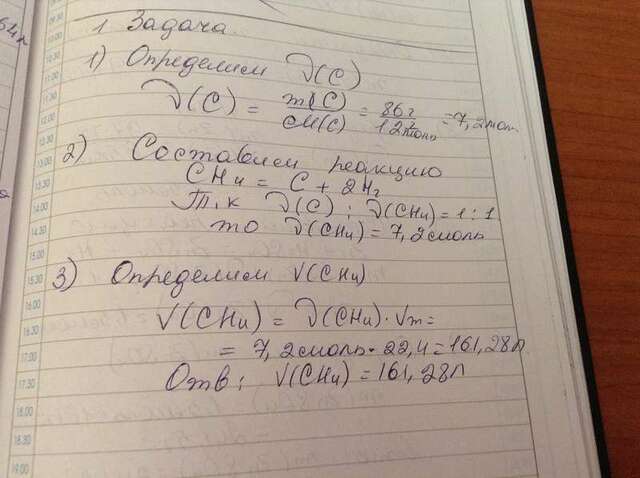 1 Задача.
1) Определим ν(C)
ν(C) = m(C)/M(C) = 86г/12г/моль = 7,2моль
2) Составляем реакцию
CH4 = C + 2H2
Т.к ν(C) : ν(CH4) = 1 : 1
то ν(CH4) = 7,2 моль
3) Определим V(CH4)
V(CH4) = ν(CH4) · Vm =
= 7,2 моль · 22,4 = 161,28л
Отв: V(CH4) = 161,28л